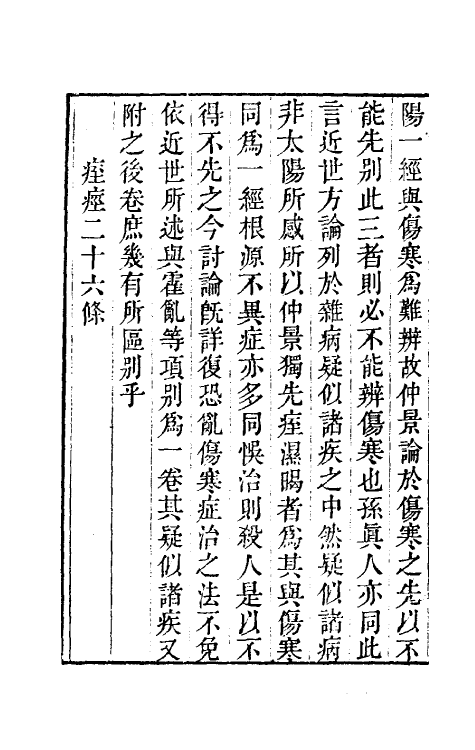 陽一經與傷寒爲難辨故仲景論於傷寒之先以不
能先别此三者則必不能辨傷寒也孫眞人亦同此
言近世方論列於雜病疑似諸疾之中然疑似諸病
非太陽所感所以仲景獨先痓濕暍者爲其與傷寒
同爲一經根源不異症亦多同悞治則殺人是以不
得不先之今討論旣詳復恐亂傷寒症治之法不免
依近世所述與霍亂等項别爲一卷其疑似諸疾又
附之後卷庶幾有所區别乎
痓痙二十六條